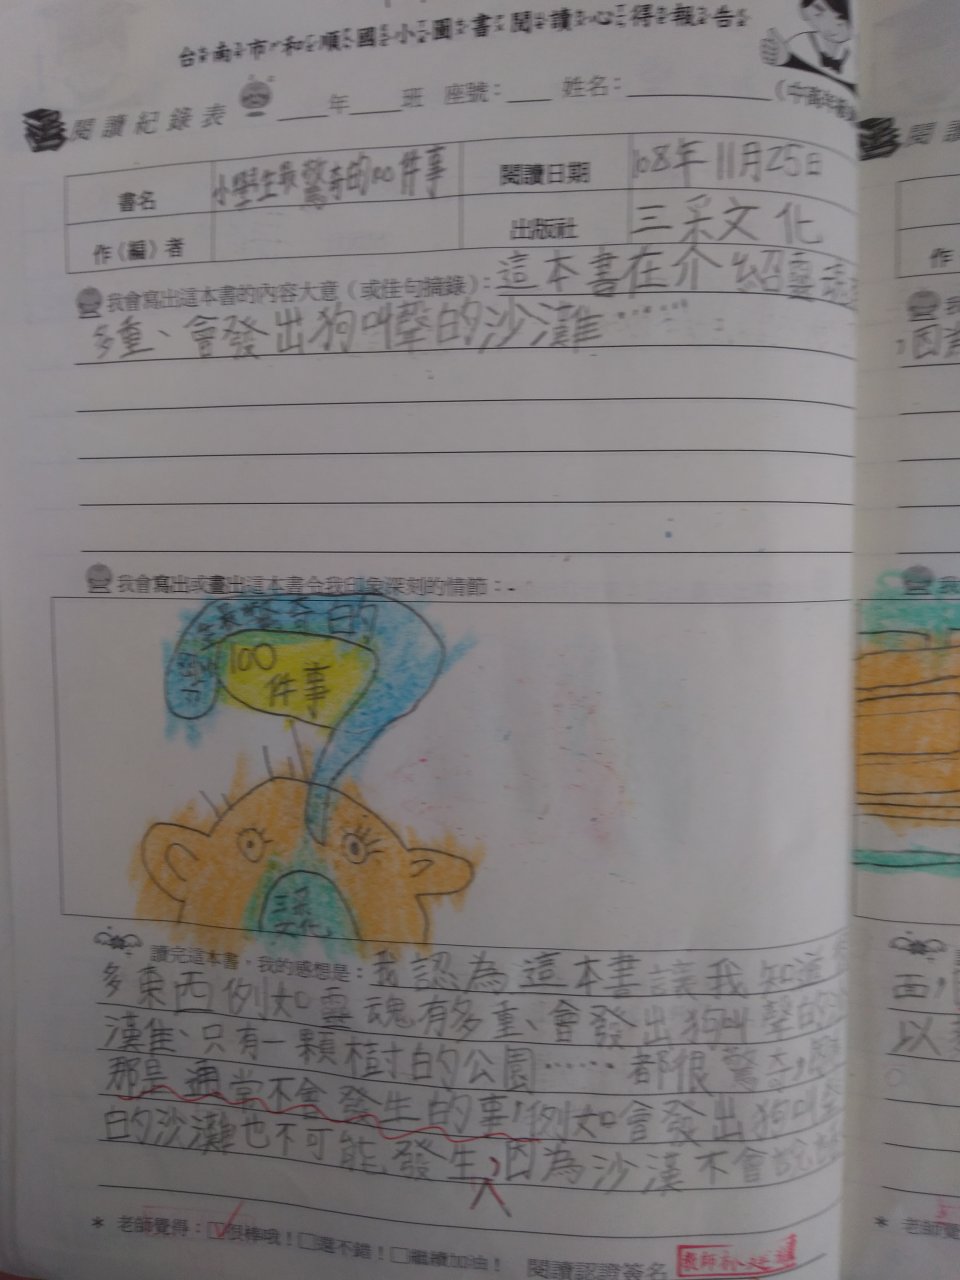 台南市和順國小圖書閱讀心得報告
閱讀紀錄表 ____年____班 座號：____ 姓名：__________ (中高年
書名 小學生最驚奇的100件事 閱讀日期 108年11月25日
作(編)者 出版社 三采文化
我會寫出這本書的內容大意（或佳句摘錄）：這本書在介紹靈魂
多重、會發出狗叫聲的沙灘……
我會寫出或畫出這本書令我印象深刻的情節：
學生最驚奇的
100
件事
三采
文化
讀完這本書，我的感想是：我認為這本書讓我知道
多東西例如靈魂有多重、會發出狗叫聲的沙
漠、只有一顆樹的公園……都很驚奇，因為
那是通常不會發生的事，例如會發出狗叫聲
的沙灘也不可能發生，因為沙漠不會說話
* 老師覺得：☑很棒哦！□還不錯！□繼續加油！ 閱讀認證簽名
閱讀
作
我
，因為
我
西，
以
* 老師覺